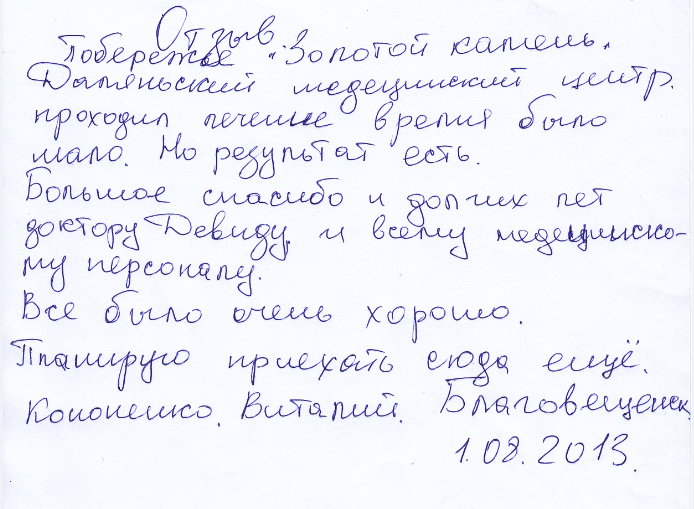 Отзыв.
Побережье "Золотой камень".
Даляньский медецинский центр.
проходил лечение время было
мало. Но результат есть.
Большое спасибо и долгих лет
доктору Девиду и всему медецинско-
му персоналу.
Все было очень хорошо.
Планирую приехать сюда ещё.
Кононенко. Виталий. Благовещенск.
1.08.2013.